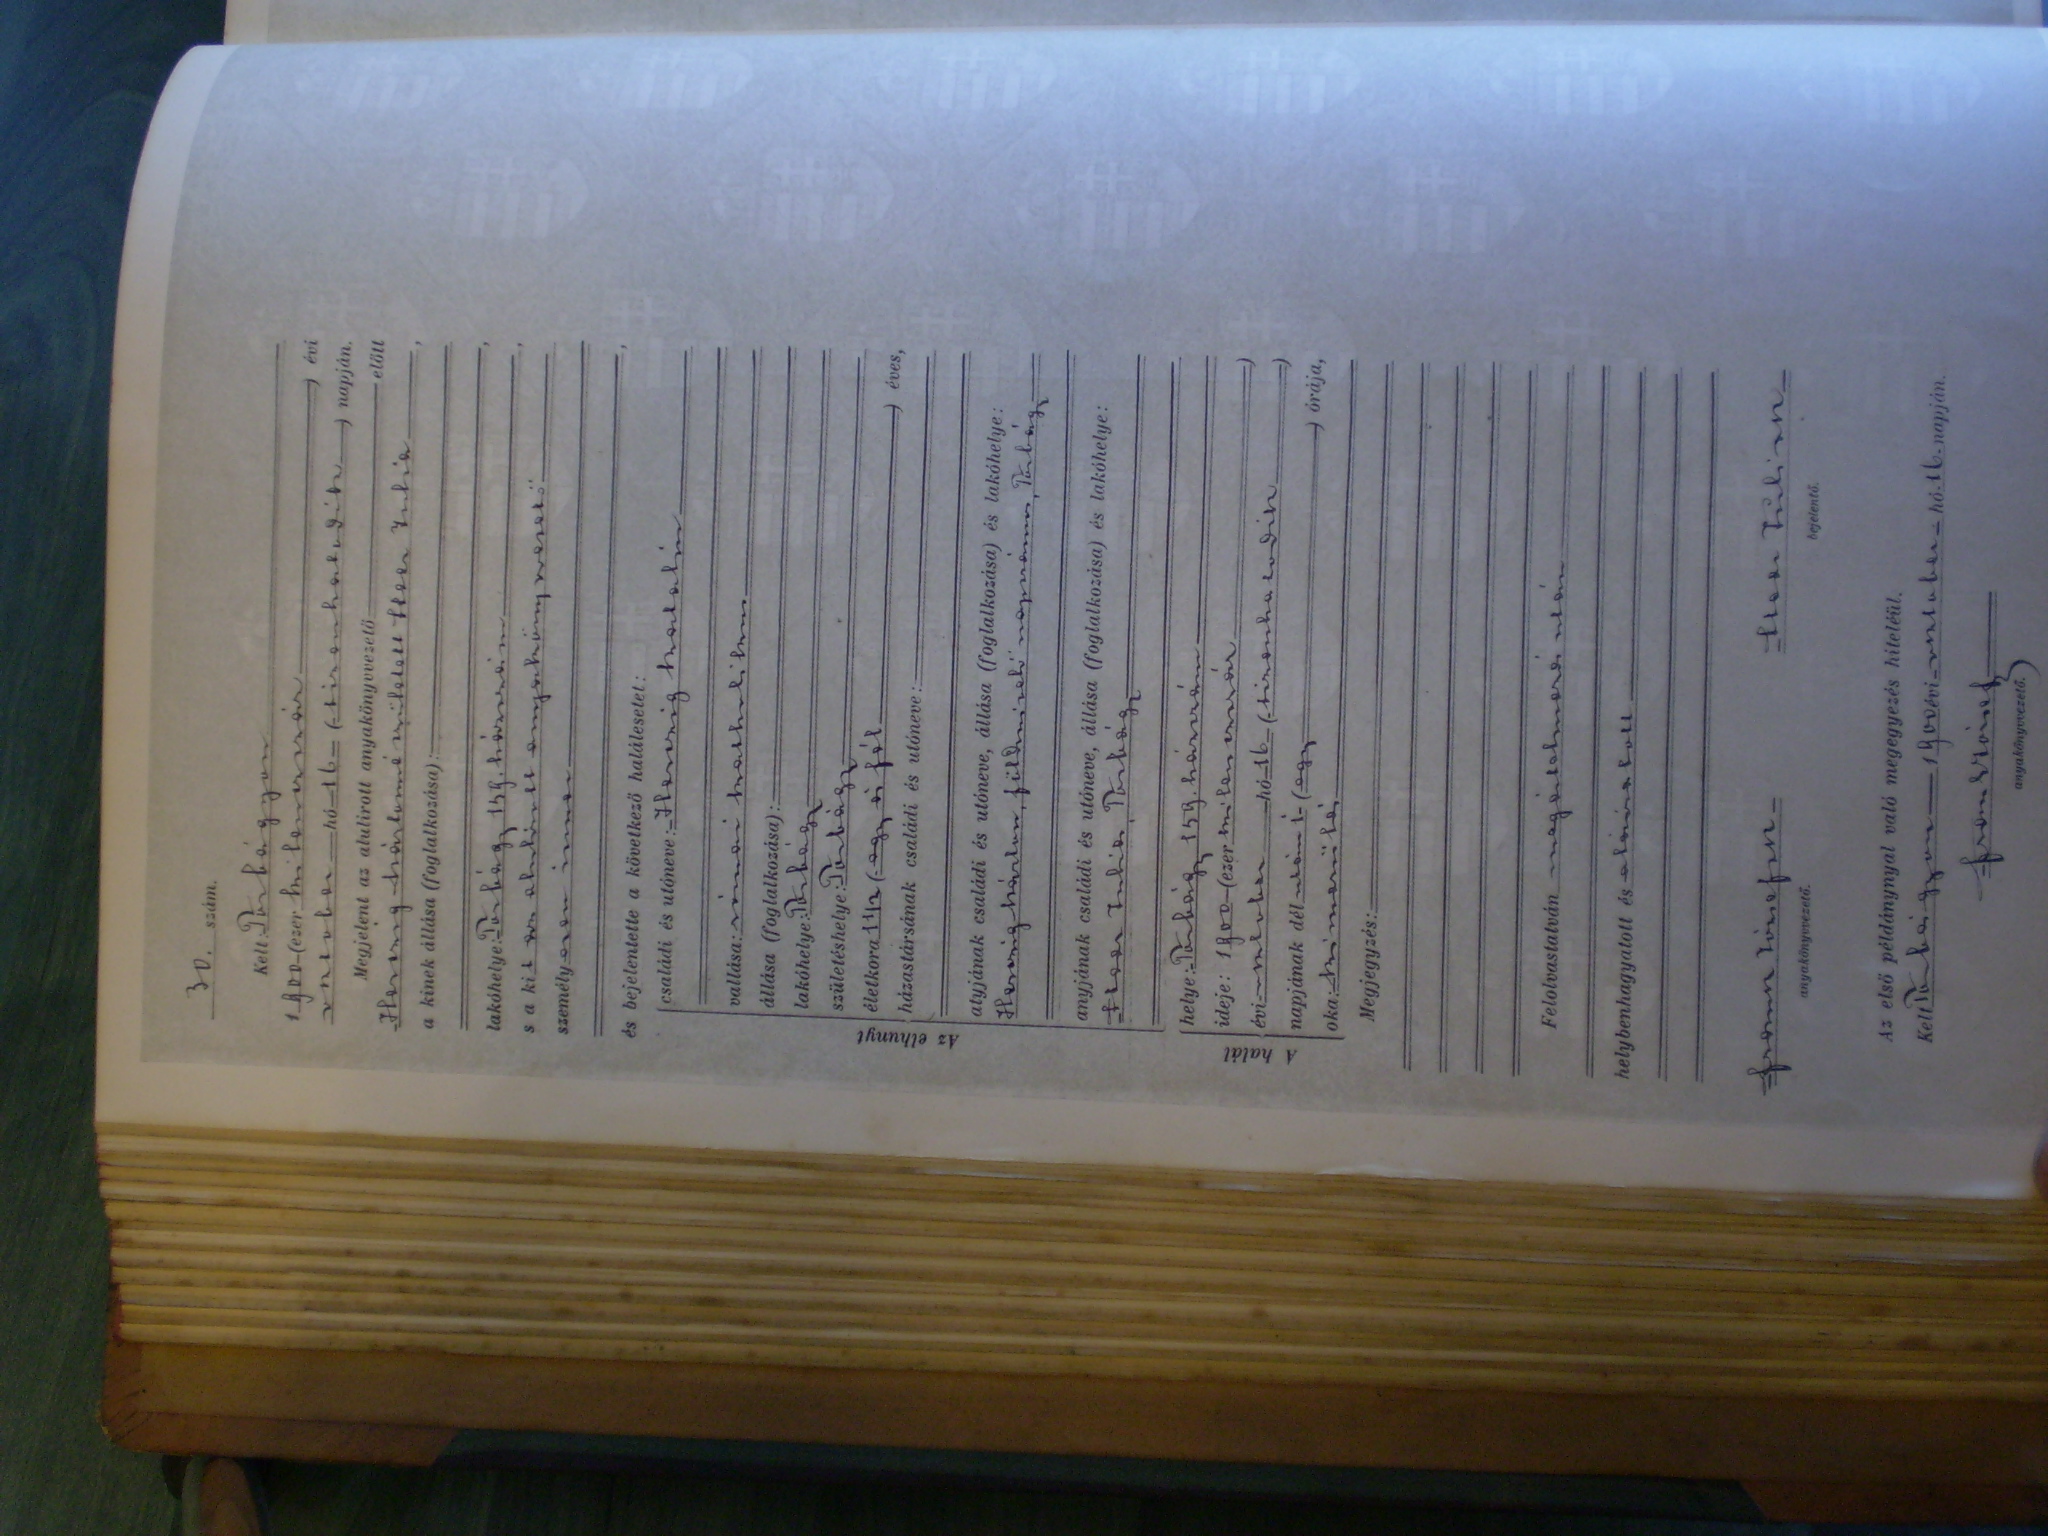 30. szám.
Kelt Torbágyon
1900 (ezer kilenczszáz) évi
október hó 16 (tizenhatodik) napján.
Megjelent az alulírott anyakönyvezető előtt
Herczig Mártonné született Steer Julia,
a kinek állása (foglalkozása):
lakóhelye: Torbágy 159. házszám,
s a kit az alulírt anyakönyvvezető,
személyesen ismer
és bejelentette a következő halálesetet:
Az elhunyt
családi és utóneve: Herczig Katalin
vallása: római katholikus
állása (foglalkozása):
lakóhelye: Torbágy
születéshelye: Torbágy
életkora 1 1/2 (egy és fél) éves,
házastársának családi és utóneve:
atyjának családi és utóneve, állása (foglalkozása) és lakóhelye:
Herczig Márton, földmívelő napszámos, Torbágy
anyjának családi és utóneve, állása (foglalkozása) és lakóhelye:
Steer Julia, Torbágy
A halál
helye: Torbágy 159. házszám
ideje: 1900 (ezer kilenczszáz)
évi október hó 16 (tizenhatodik)
napjának dél utáni 1 (egy) órája,
oka:
Megjegyzés:
Felolvastatván megmagyarázás után
helybenhagyatott és aláíratott
anyakönyvvezető.
bejelentő.
Az első példánynyal való megegyezés hiteléül.
Kelt Torbágyon 1900 évi október hó 16. napján.
anyakönyvvezető.